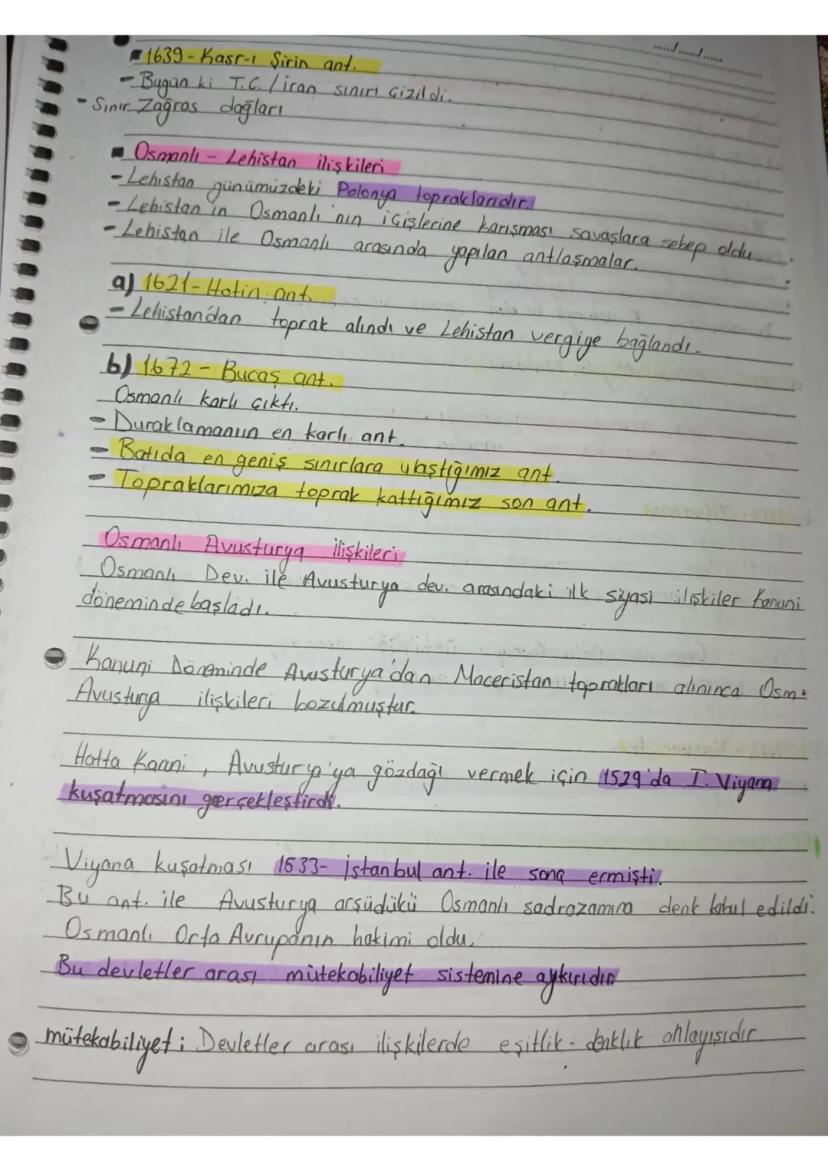 ...../...../......
▪ 1639 - Kasr-ı Şirin ant.
- Bugün ki T.C. / İran sınırı çizildi.
- Sınır Zagros dağları
▪ Osmanlı - Lehistan ilişkileri
- Lehistan günümüzdeki Polonya topraklarıdır.
- Lehistan'ın Osmanlı'nın içişlerine karışması savaşlara sebep oldu.
- Lehistan ile Osmanlı arasında yapılan antlaşmalar.
a) 1621 - Hotin ant.
- Lehistandan toprak alındı ve Lehistan vergiye bağlandı.
b) 1672 - Bucaş ant.
Osmanlı karlı çıktı.
- Duraklamanın en karlı ant.
- Batıda en geniş sınırlara ulaştığımız ant.
- Topraklarımıza toprak kattığımız son ant.
Osmanlı Avusturya ilişkileri
Osmanlı Dev. ile Avusturya dev. arasındaki ilk siyasi ilişkiler Kanuni
döneminde başladı.
Kanuni Döneminde Avusturya'dan Maceristan toprakları alınınca Osm.
Avusturya ilişkileri bozulmuştur.
Hatta Kaani, Avusturya'ya gözdağı vermek için 1529'da I. Viyana
kuşatmasını gerçekleştirdi.
Viyana kuşatması 1533- İstanbul ant. ile sona ermişti.
Bu ant. ile Avusturya arşüdükü Osmanlı sadrazamına denk kabul edildi.
Osmanlı Orta Avrupanın hakimi oldu.
Bu devletler arası mütekabiliyet sistemine aykırıdır
mütekabiliyet: Devletler arası ilişkilerde eşitlik - denklik anlayışıdır